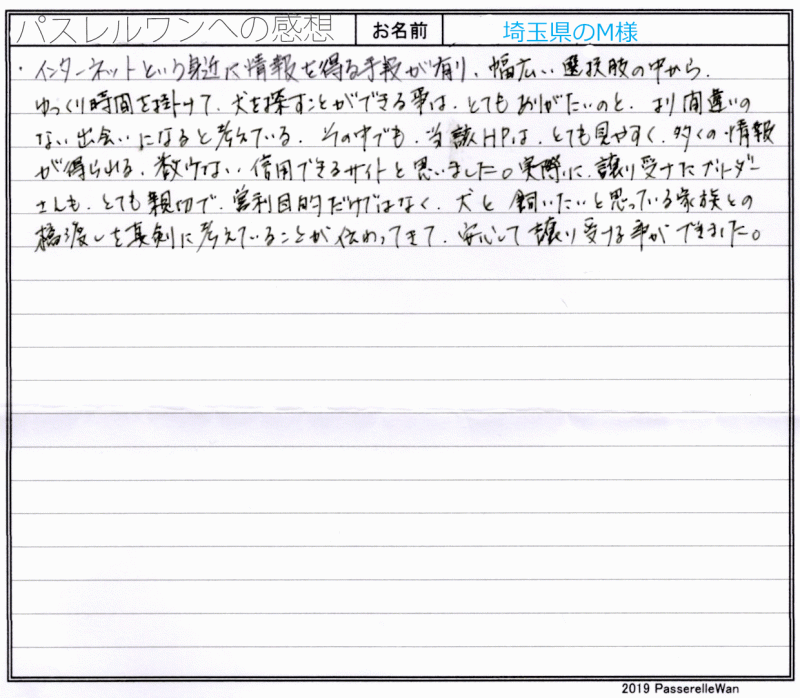 パスレルワンへの感想 お名前 埼玉県のM様
・インターネットという身近に情報を得る手段が有り、幅広い選択肢の中から、
ゆっくり時間を掛けて、犬を探すことができる事は、とてもありがたいのと、より間違いの
ない出会いになると考えている。その中でも、当該HPは、とても見やすく、多くの情報
が得られる、数少ない信用できるサイトと思いました。実際に、譲り受けたブリーダー
さんも、とても親切で、営利目的だけではなく、犬と飼いたいと思っている家族との
橋渡しを真剣に考えていることが伝わってきて、安心して譲り受ける事ができました。
2019 PasserelleWan